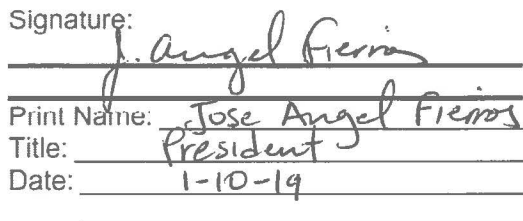 Signature: J. Angel Fierros
Print Name: Jose Angel Fierros
Title: President
Date: 1-10-19